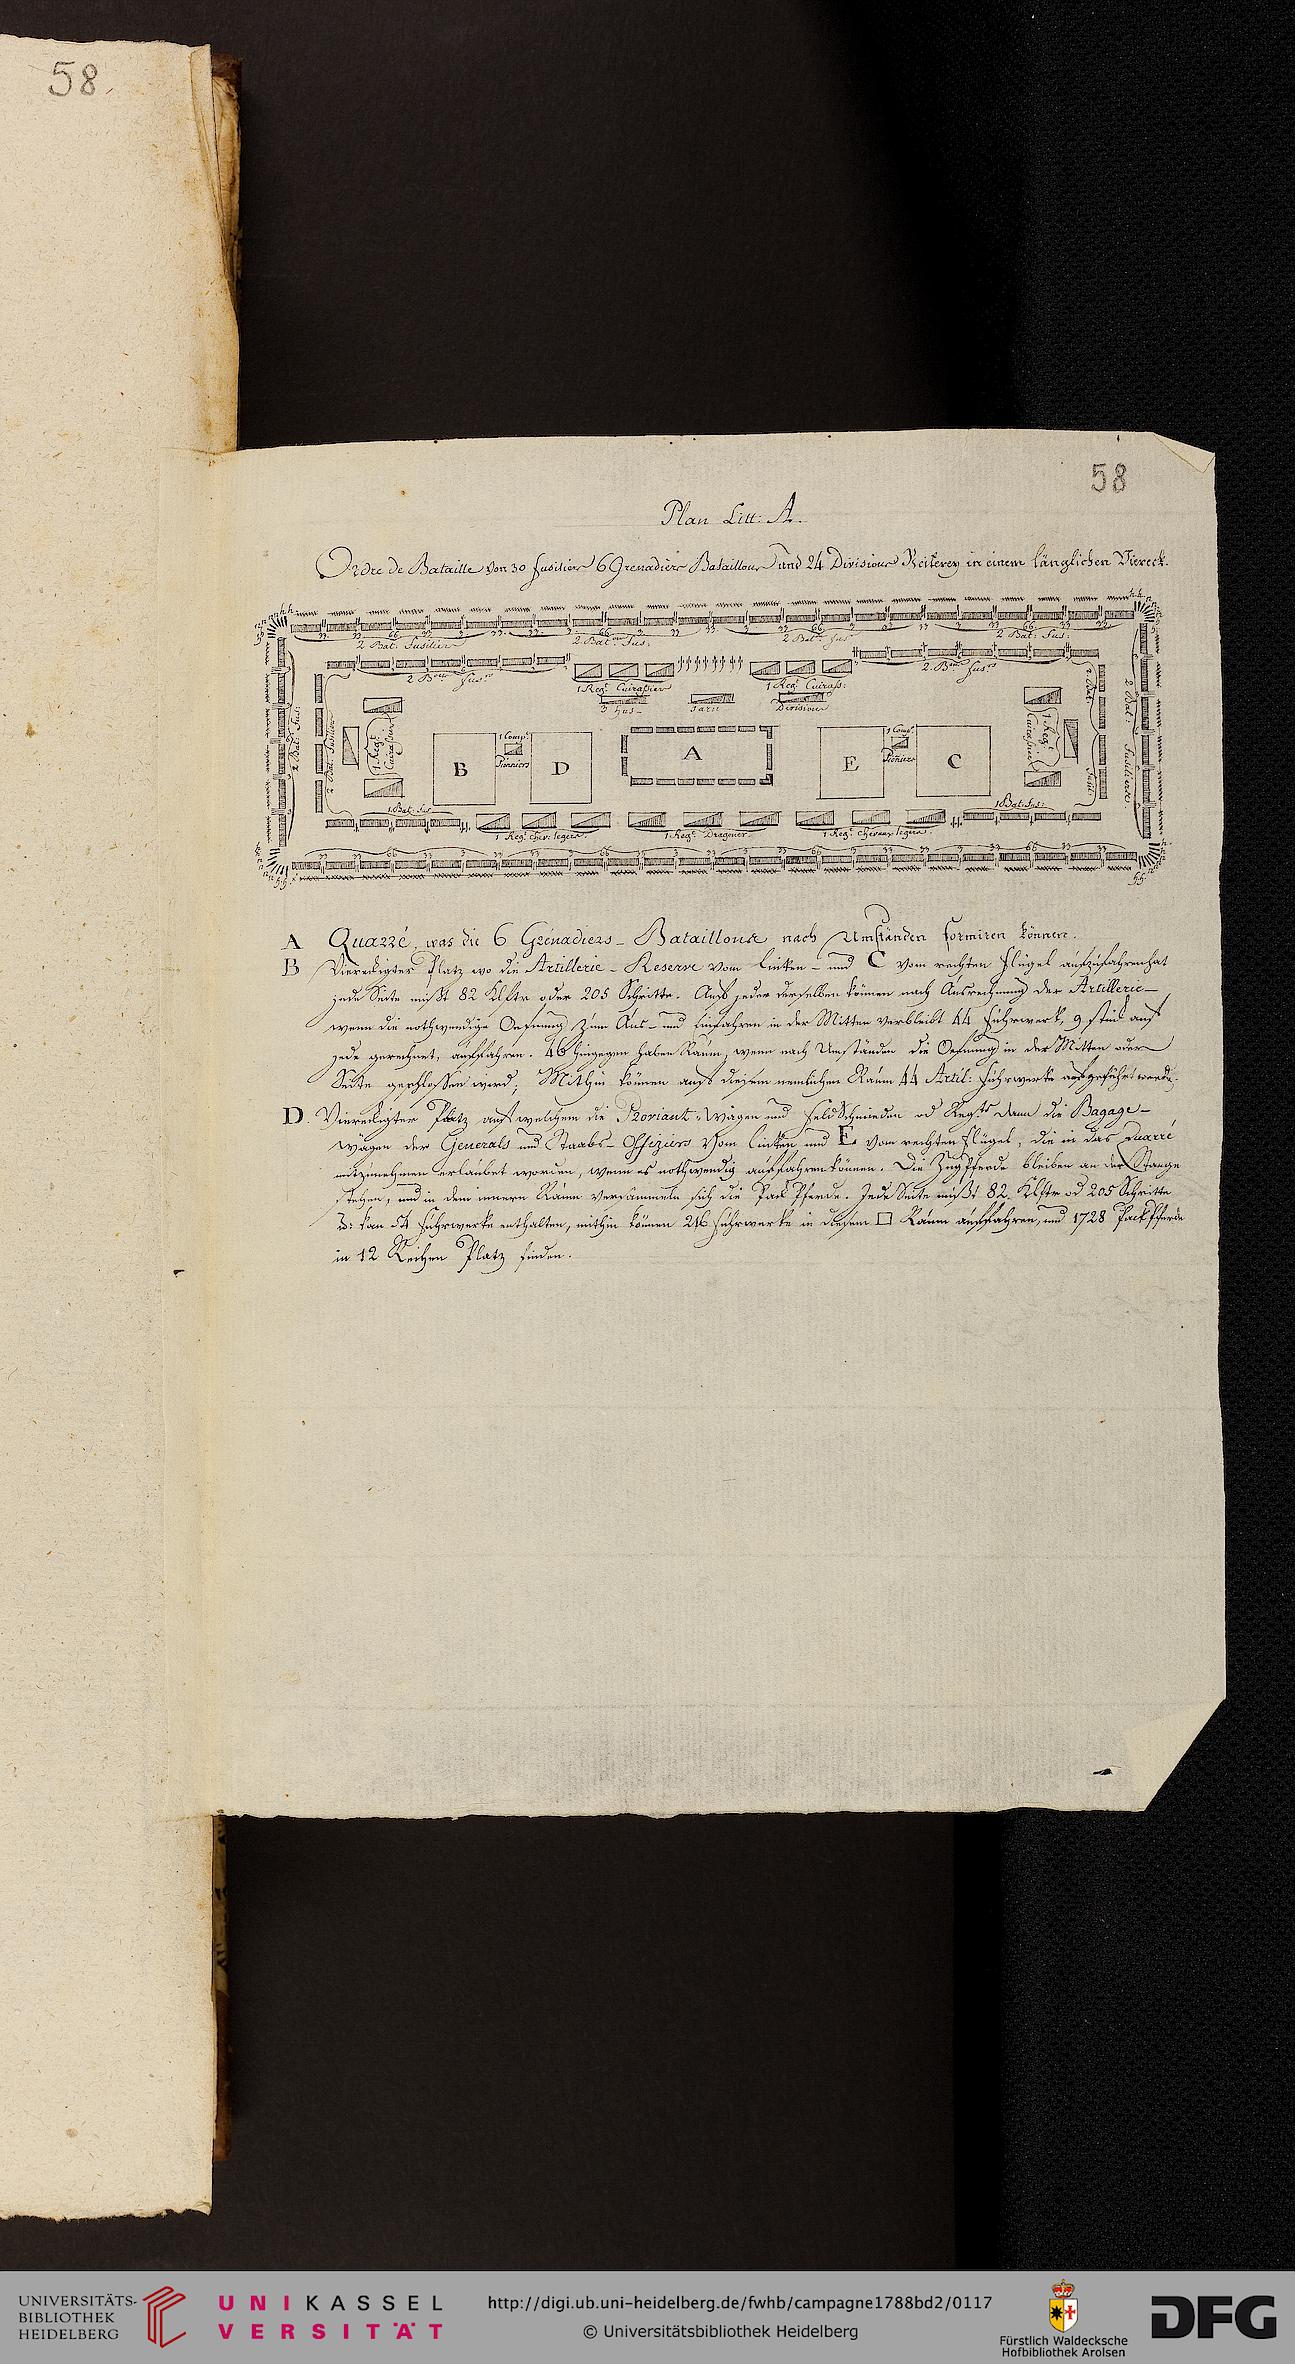 58.
58
Plan Litt: A.
Ordre de Bataille von 30 Fusilier 6 Grenadier Bataillons und 24 Divisions Reiterey in einem länglichen Viereck.
2 Bat: Fusilier
2 Bat: Fus:
2 Bat: Fus
2 Bat: Fus:
2 Fus
1 Reg: Cuirassier
1 Reg: Cuiras:
2 Fus
3 Hus-
saren
Divisionen
2 Bat: Fus:
2 Bat: Fusilier
1 Reg: Cuirassier
B
1 Comp:
Pionniers
D
A
E
1 Comp:
Pioniers
C
1 Reg: Cuirassier
2 Bat: Fus:
2 Bat: Fusiliere
1 Bat: Fus
1 Bat: Fus:
1 Reg: Chev: legers
1 Reg: Dragoner
1 Reg: Chevaux legers
A Quarré, was die 6 Grenadiers-Bataillons nach Umständen formiren können.
B Viereckigter Platz wo die Artillerie-Reserve vom linken- und C vom rechten Flügel aufzufahren hat
jede Seite mißt 82 Klftr oder 205 Schritte. Auf jeder derselben können nach Ausrechnung der Artillerie-
wenn die nothwendige Oefnung zum Aus- und Einfahren in der Mitten verbleibt 44 Fuhrwerk, 9 auf
jede gerechnet, auffahren. 46 hingegen haben Raum, wenn nach Umständen die Oefnung in der Mitten oder
Seite geschlossen wird; Mithin können auf diesem nemlichen Raum 44 Artil: Fuhrwerke aufgeführt werden.
D. Viereckigter Platz auf welchem die Proviant-Wägen und Feld Schmieden dann die Bagage-
wägen der Generals und Staabs-Offiziers vom linken und E vom rechten Flügel, die in das Quarré
mitzunehmen erlaubet worden, wenn es nothwendig auffahren können. Die Zug Pferde bleiben an der Stange
stehen, und in dem innern Raum versammeln sich die Pack Pferde. Jede Seite mißt 82. Klftr od 205 Schritte
kan 54 Fuhrwerke enthalten, mithin können 216 Fuhrwerke in diesem □ Raum auffahren, und 1728 Pack Pferde
in 12 Reihen Platz finden.
UNIVERSITÄTS-
BIBLIOTHEK
HEIDELBERG
UNIKASSEL
VERSITÄT
http://digi.ub.uni-heidelberg.de/fwhb/campagne1788bd2/0117
© Universitätsbibliothek Heidelberg
Fürstlich Waldecksche
Hofbibliothek Arolsen
DFG